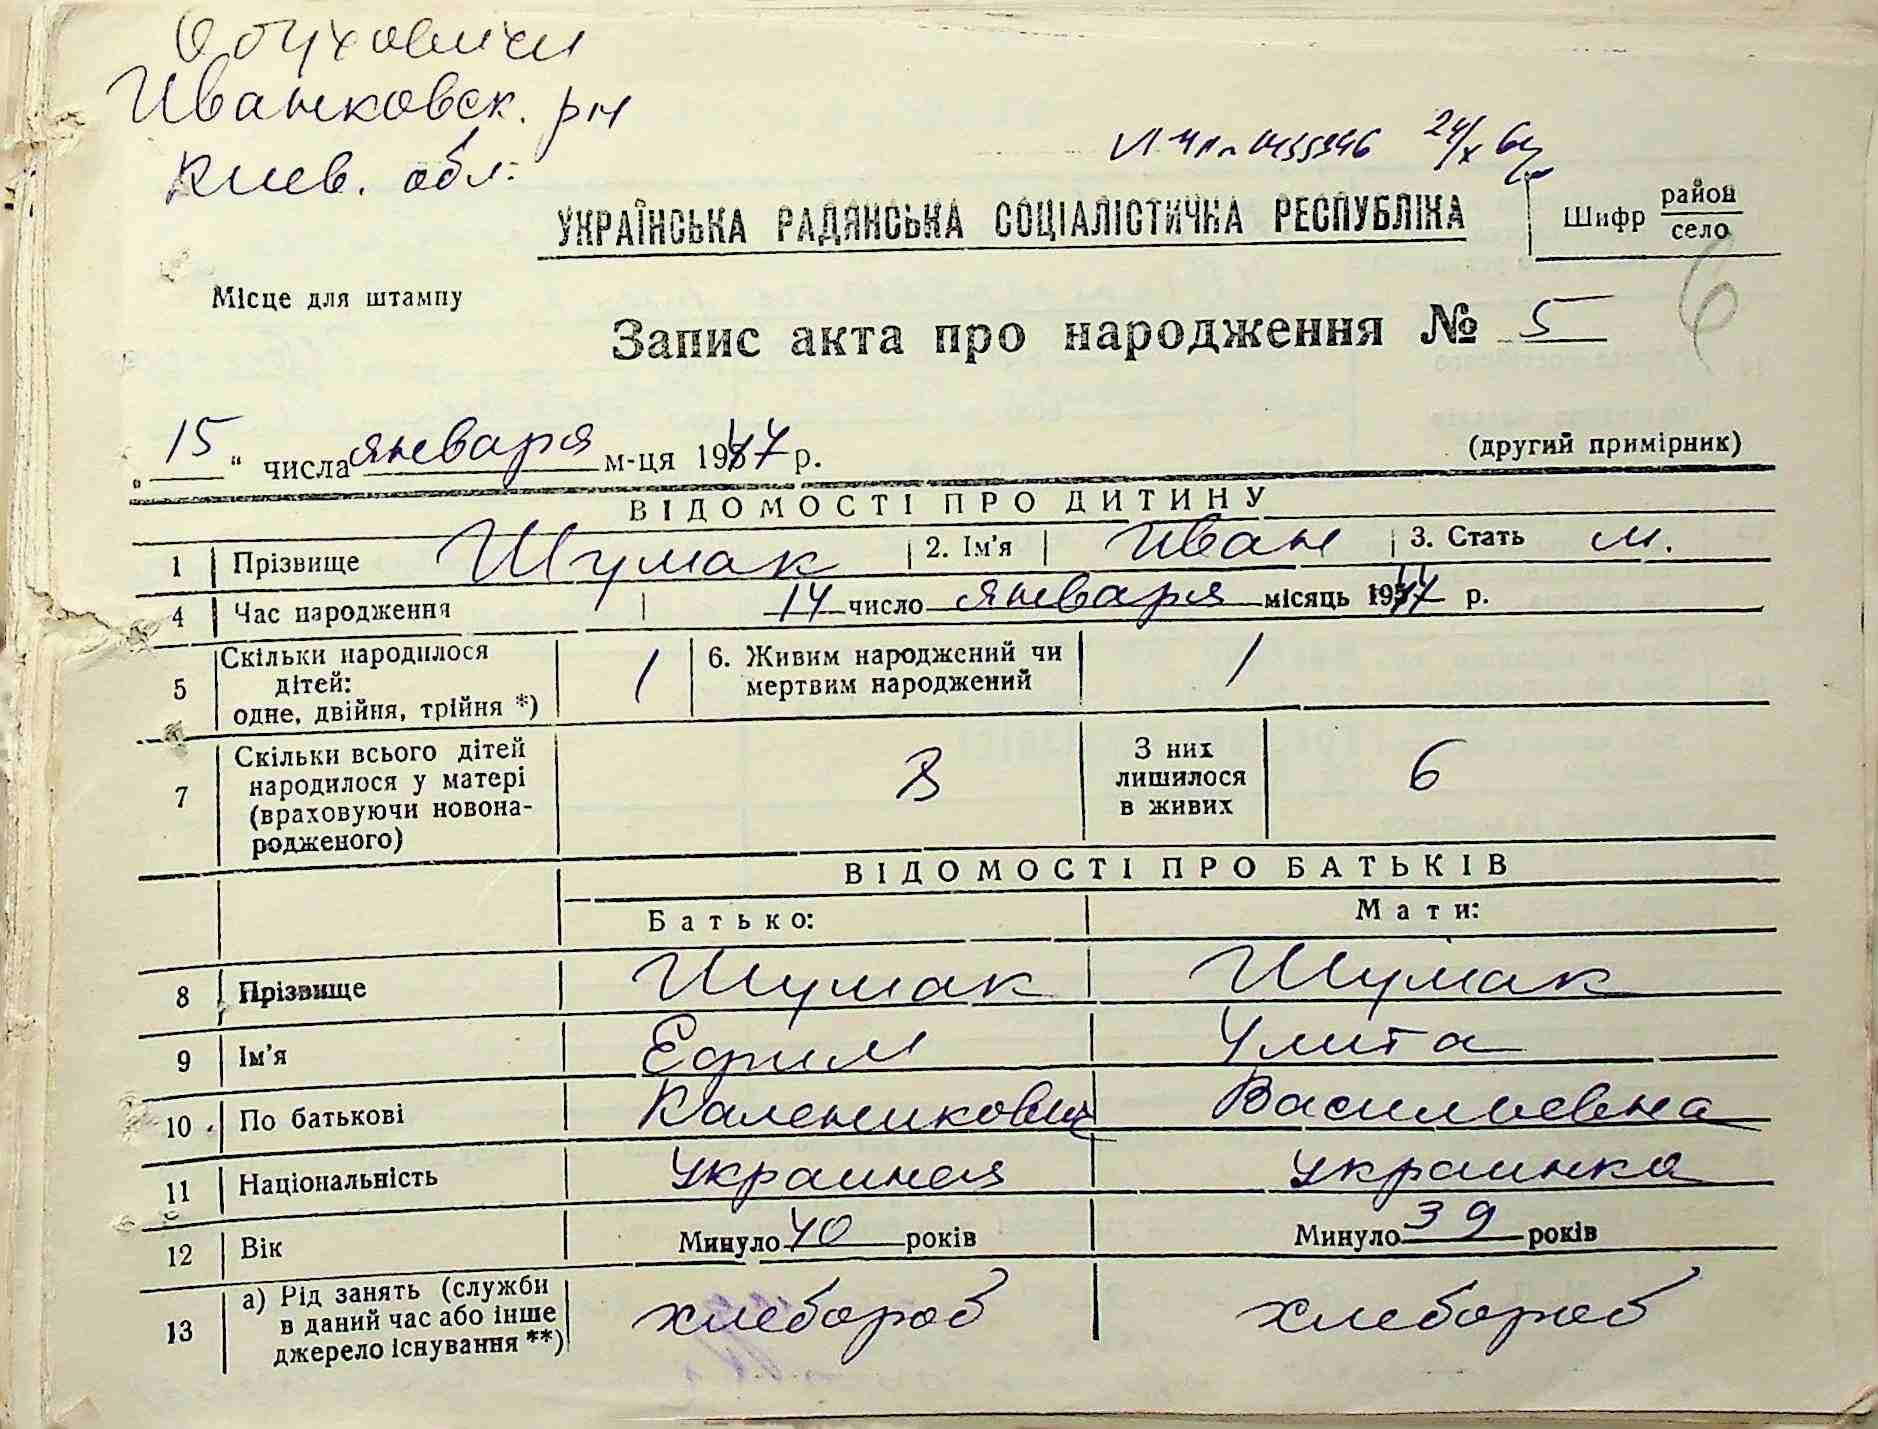 Обуховичи
Иванковск. рн
Киев. обл.
24/X 64
УКРАЇНСЬКА РАДЯНСЬКА СОЦІАЛІСТИЧНА РЕСПУБЛІКА
Шифр район село
Місце для штампу
Запис акта про народження № 5
6
„15“ числа января м-ця 1947 р.
(другий примірник)
ВІДОМОСТІ ПРО ДИТИНУ
1 Прізвище Шумак 2. Ім'я Иван 3. Стать м.
4 Час народження 14 число января місяць 1947 р.
5 Скільки народилося дітей: одне, двійня, трійня *) 1 6. Живим народжений чи мертвим народжений 1
7 Скільки всього дітей народилося у матері (враховуючи новонародженого) 8 З них лишилося в живих 6
ВІДОМОСТІ ПРО БАТЬКІВ
Батько: Мати:
8 Прізвище Шумак Шумак
9 Ім'я Ефим Улита
10 По батькові Каленикович Васильевна
11 Національність Украинец Украинка
12 Вік Минуло 40 років Минуло 39 років
13 а) Рід занять (служби в даний час або інше джерело існування **) хлебороб хлебороб